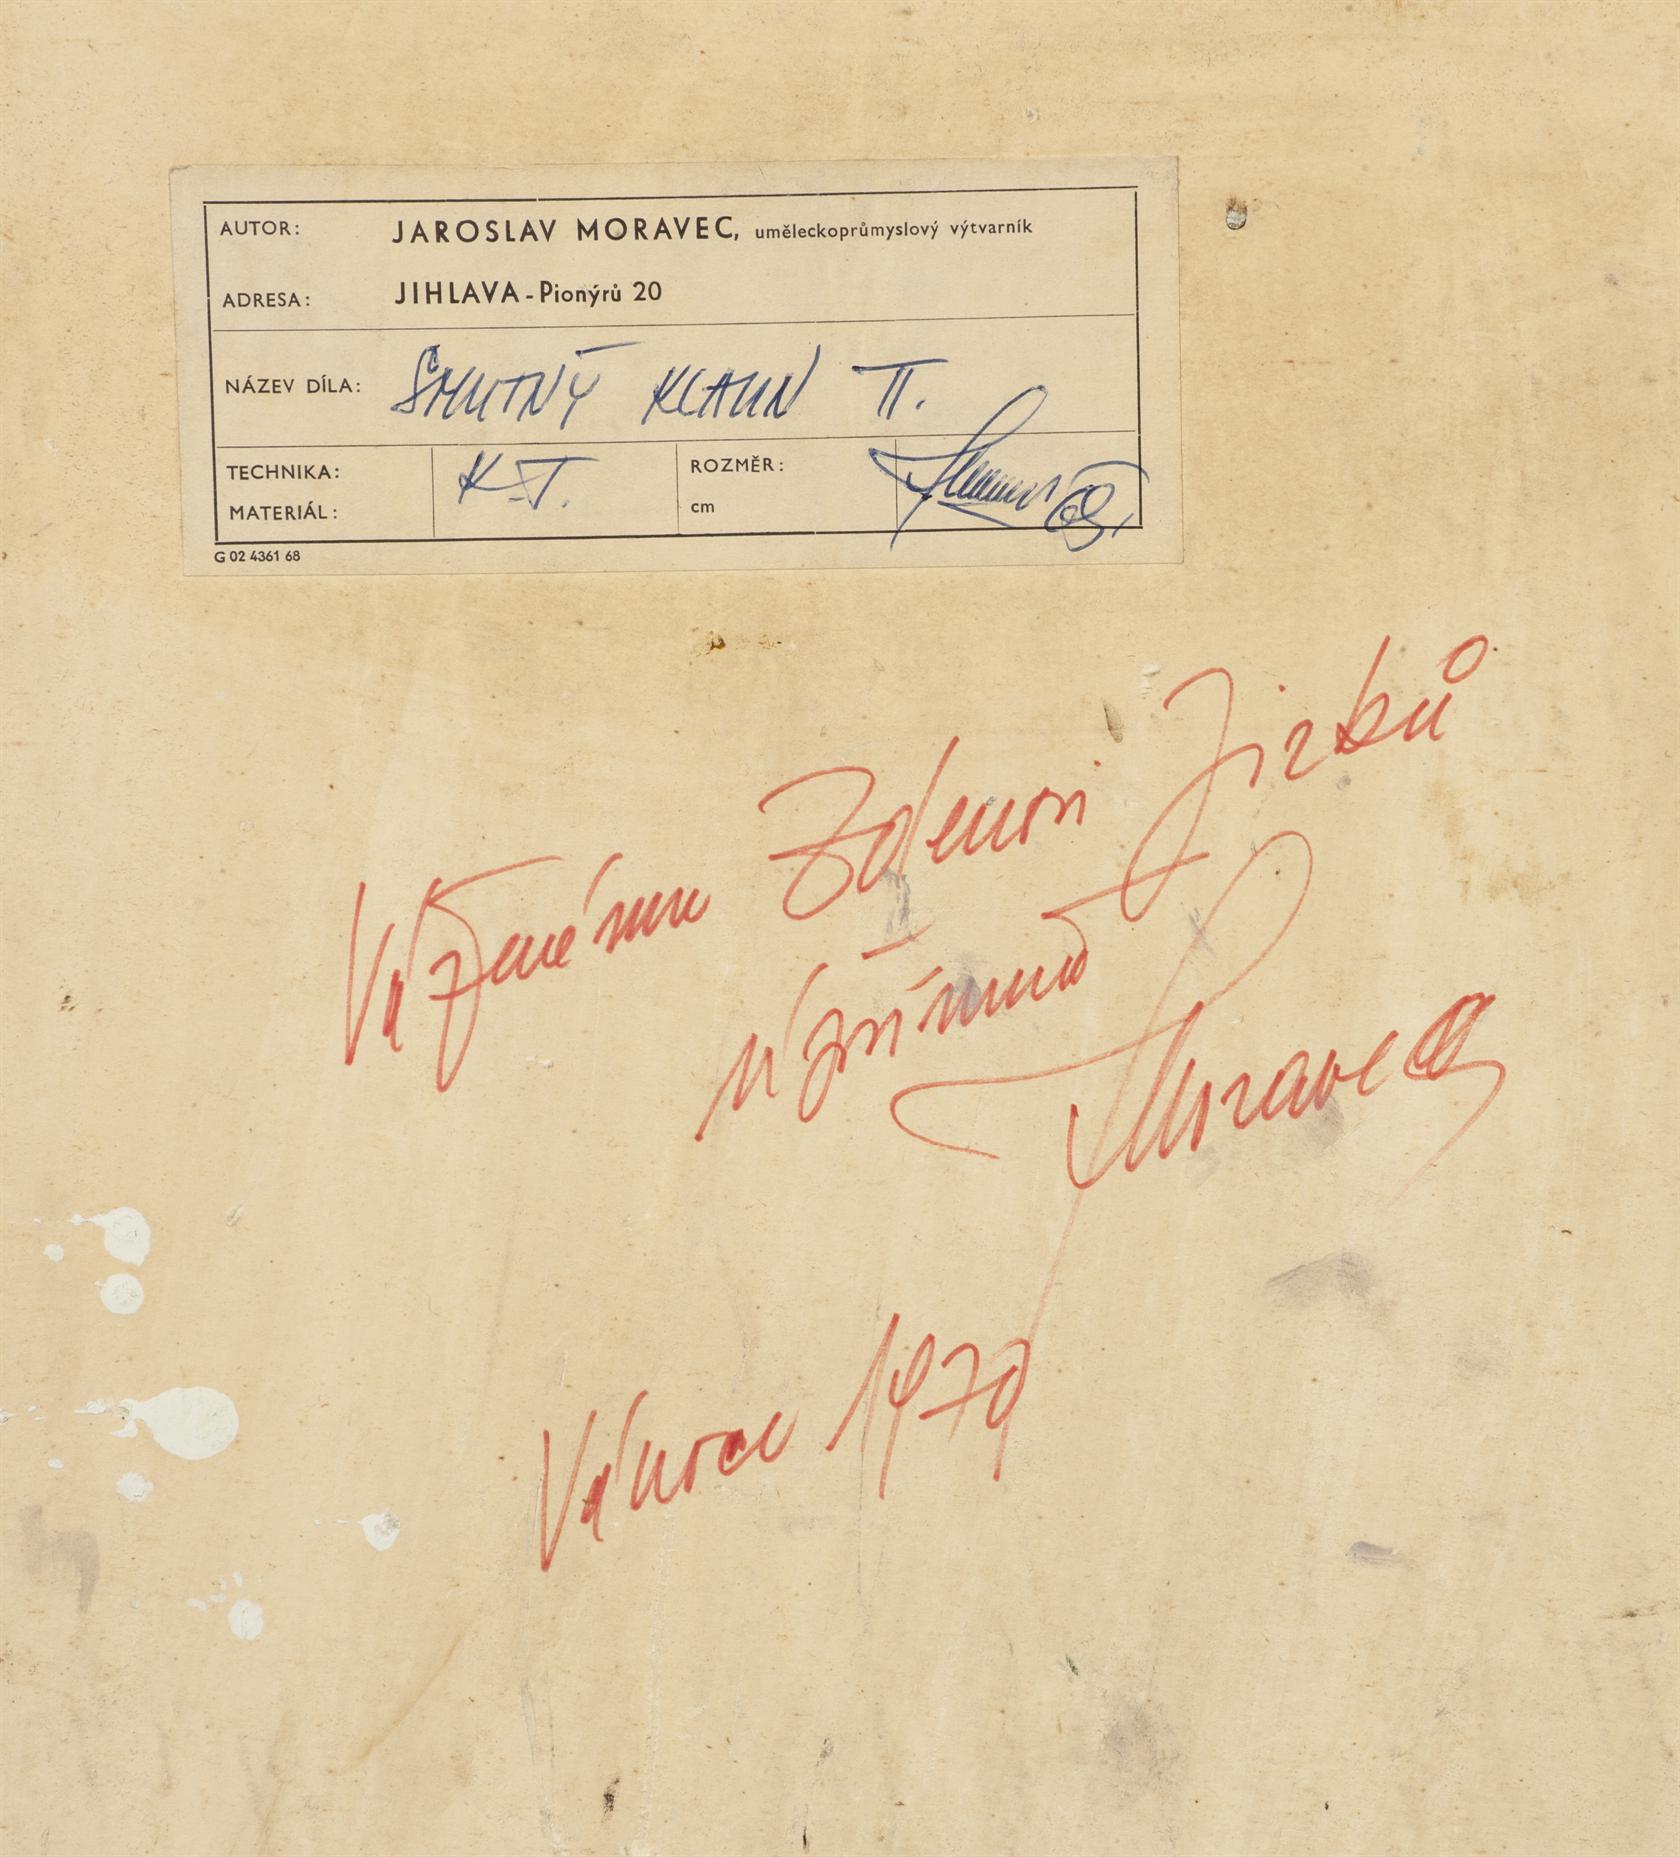 AUTOR: JAROSLAV MORAVEC, uměleckoprůmyslový výtvarník
ADRESA: JIHLAVA - Pionýrů 20
NÁZEV DÍLA: SMUTNÝ KLAUN II.
TECHNIKA: K.T.
MATERIÁL:
ROZMĚR:
cm
G 02 4361 68
Váženému Zdenovi Jirků
upřímně
Moravec
Vánoce 1979